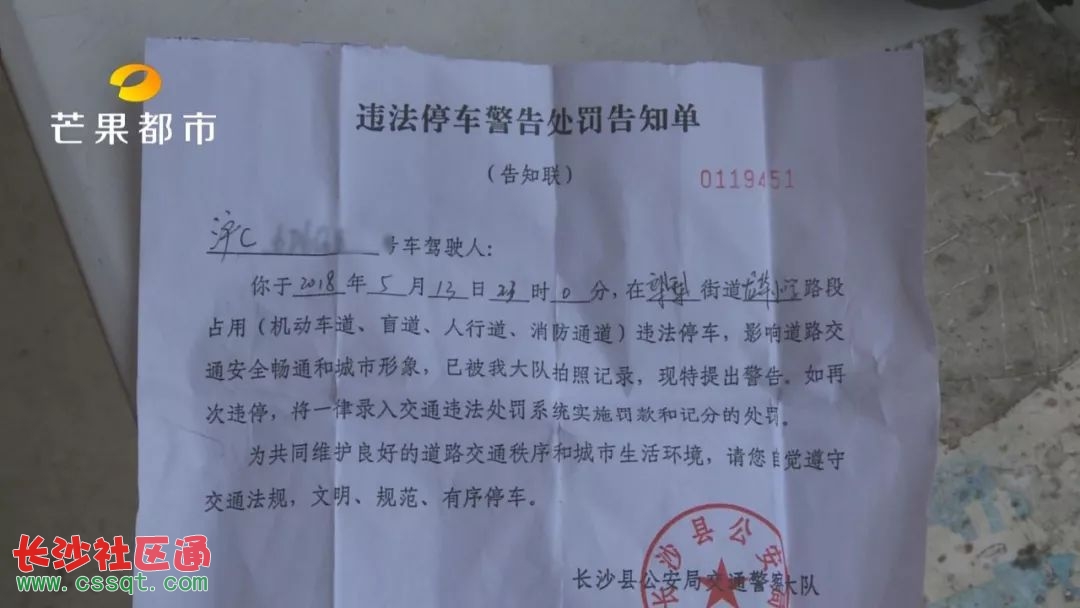 芒果都市
违法停车警告处罚告知单
（告知联）
0119451
号车驾驶人：
你于2018年5月13日23时0分，在街道路段
占用（机动车道、盲道、人行道、消防通道）违法停车，影响道路交
通安全畅通和城市形象，已被我大队拍照记录，现特提出警告。如再
次违停，将一律录入交通违法处罚系统实施罚款和记分的处罚。
为共同维护良好的道路交通秩序和城市生活环境，请您自觉遵守
交通法规，文明、规范、有序停车。
长沙县公安局
长沙县公安局交通警察大队
长沙社区通
www.cssqt.com